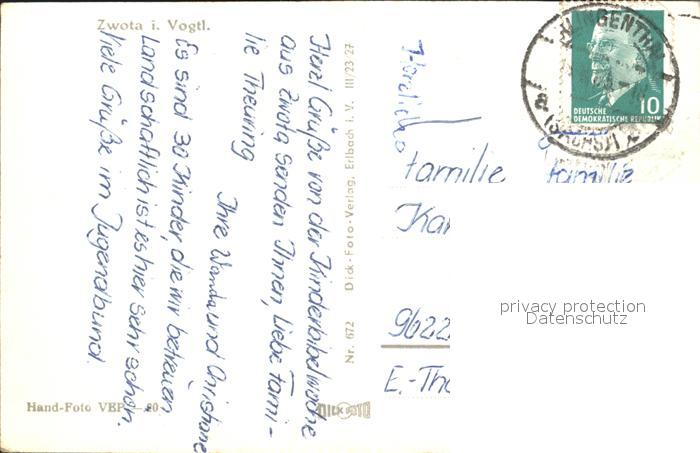 Zwota i. Vogtl.
Herzl. Grüße von der Kinderbibelwoche
aus Zwota senden Ihnen, Liebe Fami-
lie Theuring
Ihre Wanda und Christiane
Es sind 30 Kinder, die wir betreuen
Landschaftlich ist es hier sehr schön.
Viele Grüße im Jugendbund.
Hand-Foto VEP — 80
Nr. 672 Dick-Foto-Verlag, Erlbach i. V. III/23-27
DICK FOTO
KLINGENTHAL
a
(SACHS) 2
DEUTSCHE
DEMOKRATISCHE REPUBLIK
10
Familie
Familie
Kar
9622
E.-Tho
privacy protection
Datenschutz